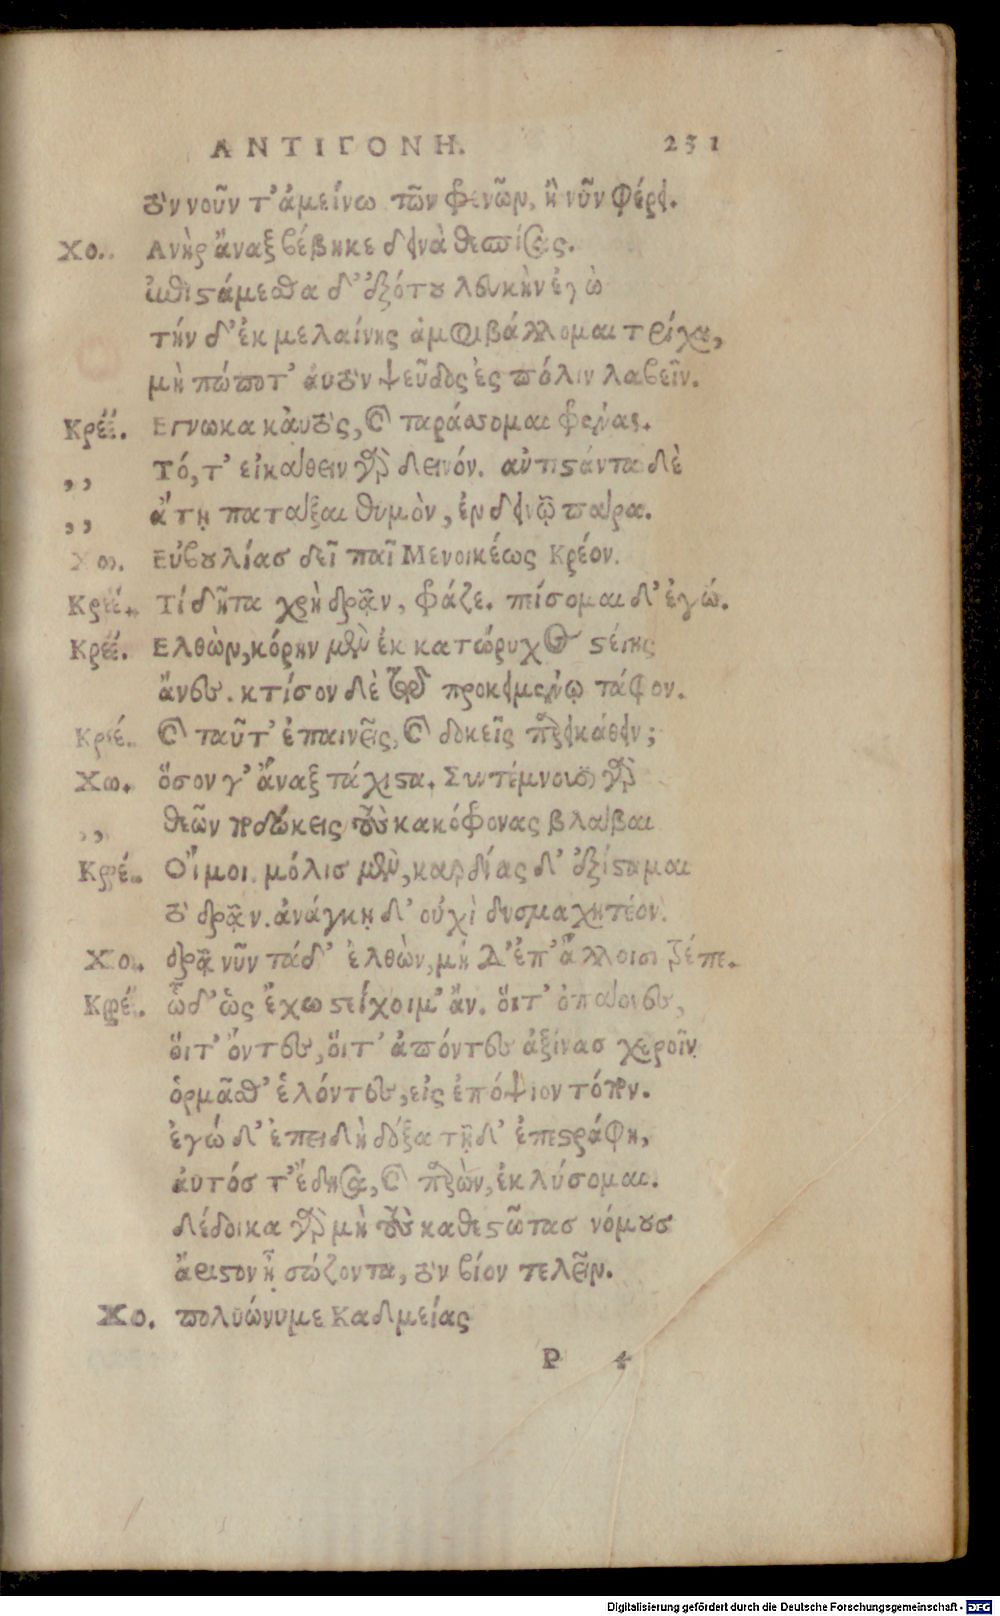 ΑΝΤΙΓΟΝΗ. 251
τὸν νοῦν τ' ἀμείνω τῶν φρενῶν, ἢ νῦν φέρει.
Χο. Ανὴρ ἄναξ βέβηκε δεινὰ θεσπίσας.
ἐπιστάμεσθα δ' ἐξότου λευκὴν ἐγὼ
τήν δ' ἐκ μελαίνης ἀμφιβάλλομαι τρίχα,
μὴ πώποτ' αὐτὸν ψεῦδος ἐς πόλιν λαβεῖν.
Κρέ. Εγνωκα καὐτὸς, καὶ ταράσσομαι φρένας.
,, Τό, τ' εἰκάθειν γὰρ δεινόν. ἀντιστάντα δὲ
,, ἄτῃ πατάξαι θυμὸν, ἐν δεινῷ πάρα.
Χο. Εὐβουλίας δεῖ παῖ Μενοικέως Κρέον.
Κρέ. Τί δῆτα χρὴ δρᾷν, φράζε. πείσομαι δ' ἐγώ.
Κρέ. Ελθὼν, κόρην μὲν ἐκ κατώρυχος στέγης
ἄνες. κτίσον δὲ τῷ προκειμένῳ τάφον.
Κρέ. καὶ ταῦτ' ἐπαινεῖς, καὶ δοκεῖς παρεικάθειν;
Χω. ὅσον γ' ἄναξ τάχιστα. Συντέμνουσι γὰρ
,, θεῶν ποδώκεις τοὺς κακόφρονας βλάβαι
Κρέ. Οἴμοι. μόλις μὲν, καρδίας δ' ἐξίσταμαι
τὸ δρᾷν. ἀνάγκῃ δ' οὐχὶ δυσμαχητέον.
Χο. δρᾷ νῦν τάδ' ἐλθὼν, μὴ δ' ἐπ' ἄλλοισι τρέπε.
Κρέ. ὧδ' ὡς ἔχω στείχοιμ' ἄν. ὅιτ' ὀπάονες,
ὅιτ' ὄντες, ὅιτ' ἀπόντες ἀξίνας χεροῖν
ὁρμᾶσθ' ἑλόντες, εἰς ἐπόψιον τόπον.
ἐγώ δ' ἐπειδὴ δόξα τῇδ' ἐπεστράφη,
ἀυτός τ' ἔδησα, καὶ παρὼν, ἐκλύσομαι.
δέδοικα γὰρ μὴ τοὺς καθεστῶτας νόμους
ἄριστον ᾖ σώζοντα, τὸν βίον τελεῖν.
Χο. πολυώνυμε Καδμείας
R 4
Digitalisierung gefördert durch die Deutsche Forschungsgemeinschaft - DFG